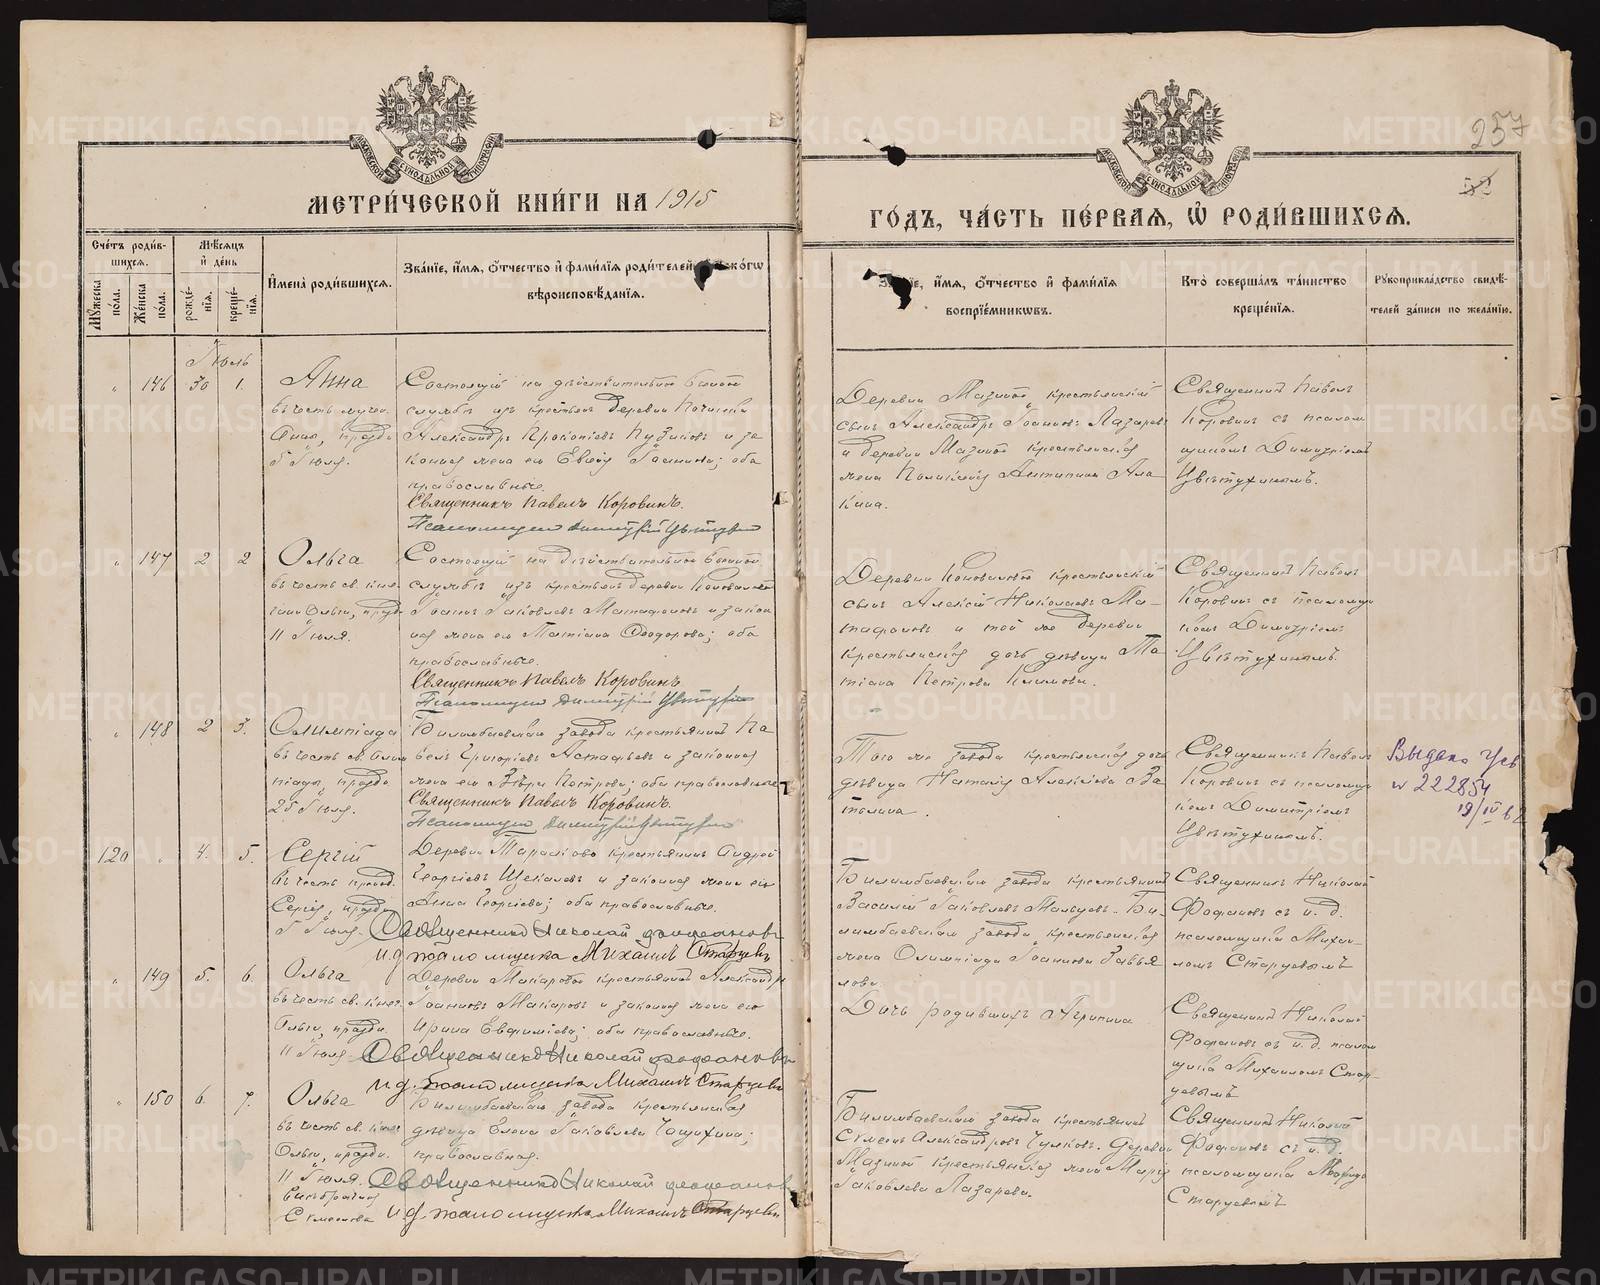 МЕТРИ́ЧЕСКОЙ КНИ́ГИ НА 1915
ГО́ДЪ, ЧА́СТЬ ПЕ́РВАЯ, Ѽ РОДИ́ВШИХСЯ.
257
52
МОСКОВСКОЙ СѴНОДАЛЬНОЙ ТИПОГРАФІИ
МОСКОВСКОЙ СѴНОДАЛЬНОЙ ТИПОГРАФІИ
Сче́тъ роди́в-
шихся.
Мꙋ́жеска по́ла.
Же́нска по́ла.
Мѣ́сяцъ
и҆ де́нь
рожде́-
нїя.
креще́-
нїя.
И҆мена̀ роди́вшихся.
Зва́нїе, и҆́мя, ѻ҆́тчество и҆ фами́лїя роди́телей, и҆ како́гѡ
вѣроисповѣ́данїя.
Зва́нїе, и҆́мя, ѻ҆́тчество и҆ фами́лїя
воспрїе́мникѡвъ.
Кто̀ соверша́лъ та́инство
креще́нїя.
Рꙋкоприкла́дство свидѣ́-
телей за́писи по жела́нїю.
Іюль
146 30 1.
Анна
въ честь мучен.
Анны, праздн.
5 Іюля.
Состоящій на дѣйствительной военной
службѣ изъ крестьянъ деревни Починка
Александръ Прокопіевъ Пузиковъ и за
конная жена его Евгенія Іоаннова; оба
православные.
Священникъ Павелъ Коровинъ.
Псаломщикъ Димитрій Цвѣтухинъ
Деревни Мазиной крестьянскій
сынъ Александръ Іоанновъ Лазаревъ
и деревни Мазиной крестьянская
жена
Священникъ Павелъ
Коровинъ съ псалом
щикомъ Димитріемъ
Цвѣтухинымъ.
147 2 2
Ольга
въ честь св. кня-
гини Ольги, праздн.
11 Іюля.
Состоящій на дѣйствительной военной
службѣ изъ крестьянъ деревни Коновалово
Іоаннъ Іаковлевъ Матафоновъ и закон
ная жена его Татіана Ѳеодорова; оба
православные.
Священникъ Павелъ Коровинъ
Псаломщикъ Димитрій Цвѣтухинъ
Деревни Коновалово крестьянскій
сынъ Алексій Николаевъ Ма-
тафоновъ и той же деревни
крестьянская дочь дѣвица Та
тіана Петрова Климова.
Священникъ Павелъ
Коровинъ съ псаломщи
комъ Димитріемъ
Цвѣтухинымъ.
148 2 3.
Олимпіада
въ честь св. Олим
піады, праздн.
25 Іюля.
Билимбаевскаго завода крестьянинъ Па
велъ Григоріевъ Астафьевъ и законная
жена его Вѣра Петрова; оба православные
Священникъ Павелъ Коровинъ.
Псаломщикъ Димитрій Цвѣтухинъ
Того же завода крестьянская дочь
дѣвица Наталія Алексіева Ва
Священникъ Павелъ
Коровинъ съ псаломщи
комъ Димитріемъ
Цвѣтухинымъ.
Выдано
№ 222854
19/IV 62
120 4. 5.
Сергій
въ честь препод.
Сергія, праздн.
5 Іюля.
Деревни Тарасково крестьянинъ Андрей
Георгіевъ Щекалевъ и законная жена его
Анна Георгіева; оба православные.
Священникъ Николай Фофановъ
и.д. псаломщика Михаилъ Старцевъ
Билимбаевскаго завода крестьянинъ
Василій Іаковлевъ Мальцевъ. Би-
лимбаевскаго завода крестьянская
жена Олимпіада Іоаннова Завья
лова.
Священникъ Николай
Фофановъ съ и. д.
псаломщика Михаи-
ломъ Старцевымъ
149 5. 6.
Ольга
въ честь св. княг.
Ольги, праздн.
11 Іюля
Деревни Макарово крестьянинъ Александръ
Іоанновъ Макаровъ и законная жена его
Ирина Евфиміева; оба православные.
Священникъ Николай Фофановъ
и.д. псаломщика Михаилъ Старцевъ
Дочь родившихъ Агрипина
Священникъ Николай
Фофановъ съ и. д. псалом
щика Михаиломъ Стар-
цевымъ
150 6. 7.
Ольга
въ честь св. княг.
Ольги, праздн.
11 Іюля.
Внѣбрачная
Билимбаевскаго завода крестьянская
дѣвица Елена Іаковлева
православная.
Священникъ Николай Фофановъ
и.д. псаломщика Михаилъ Старцевъ
Билимбаевскаго завода крестьянинъ
Сѵмеонъ Александровъ Чулковъ. Деревни
Мазиной крестьянская жена Марія
Іаковлева Лазарева.
Священникъ Николай
Фофановъ съ и. д.
псаломщика
Старцевымъ